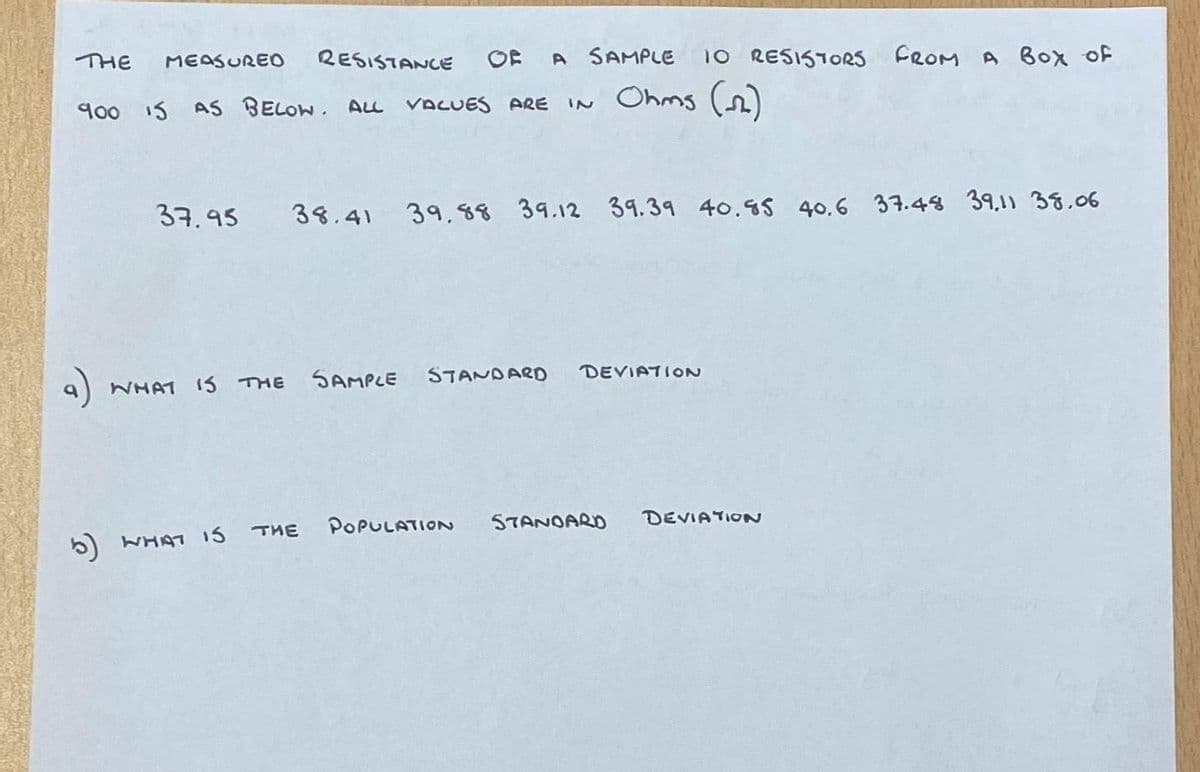 THE MEASURED RESISTANCE OF A SAMPLE 10 RESISTORS FROM A BOX OF
900 IS AS BELOW. ALL VALUES ARE IN Ohms (Ω)
37.95 38.41 39.88 39.12 39.39 40.85 40.6 37.48 39.11 38.06
a) WHAT IS THE SAMPLE STANDARD DEVIATION
b) WHAT IS THE POPULATION STANDARD DEVIATION